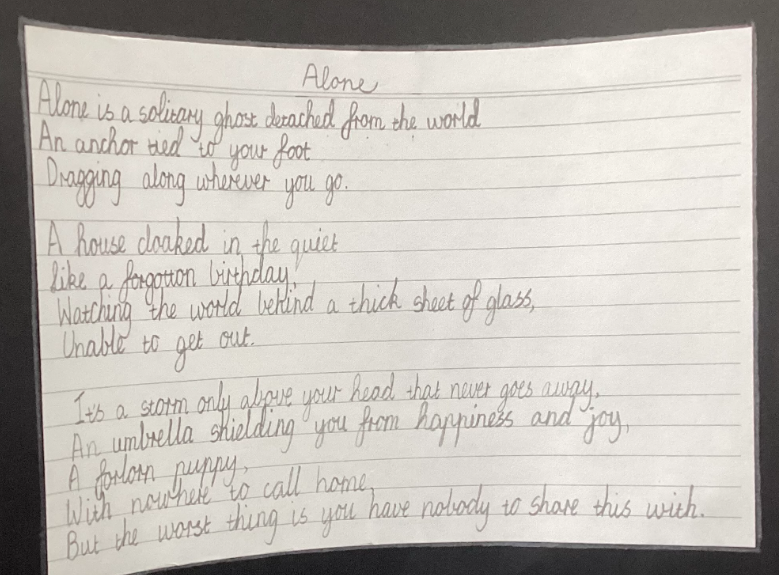 Alone
Alone is a solitary ghost detached from the world
An anchor tied to your foot
Dragging along wherever you go.
A house cloaked in the quiet
like a forgotton birthday,
Watching the world behind a thick sheet of glass,
Unable to get out.
It's a storm only above your head that never goes away,
An umbrella shielding you from happiness and joy,
A forlorn puppy,
With nowhere to call home,
But the worst thing is you have nobody to share this with.